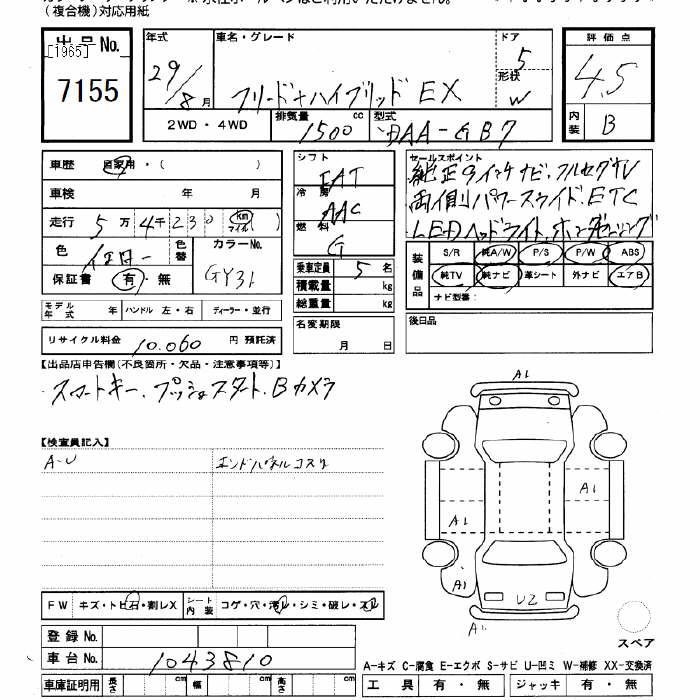 （複合機）対応用紙
出品 No. 年式 車名・グレード ドア 評価点
[1965]
7155
29/8月 フリード+ハイブリッド EX 5 4.5
形状 W
2WD・4WD 排気量 1500 cc 型式 DAA-GB7 内装 B
車歴 自家用・（ ） シフト FAT セールスポイント
純正9インチナビ、フルセグTV
車検 年 月 冷房 AAC 両側パワースライド、ETC
走行 5万4千230 km マイル（ ） 燃料 G LEDヘッドライト、ホンダセンシング
色 イエロー 色替 カラーNo. GY31
装備品 S/R 純A/W P/S P/W ABS
保証書 有・無 乗車定員 5名 純TV 純ナビ 革シート 外ナビ エアB
積載量 kg ナビ型番：
モデル年式 年 ハンドル 左・右 ディーラー・並行 総重量 kg
リサイクル料金 10.060 円 預託済 名変期限 月 日 後日品
【出品店申告欄（不良箇所・欠品・注意事項等）】
スマートキー、プッシュスタート、Bカメラ
A1
【検査員記入】
A-U エンドパネルコスリ
A1
A1
A1 U2
FW キズ・トビ石・割レX シート内装 コゲ・穴・汚レ・シミ・破レ・スレ
A1
登録 No. スペア
車台 No. 1043810
A-キズ C-腐食 E-エクボ S-サビ U-凹ミ W-補修 XX-交換済
車庫証明用 長さ cm 幅 cm 高さ cm 工具 有・無 ジャッキ 有・無